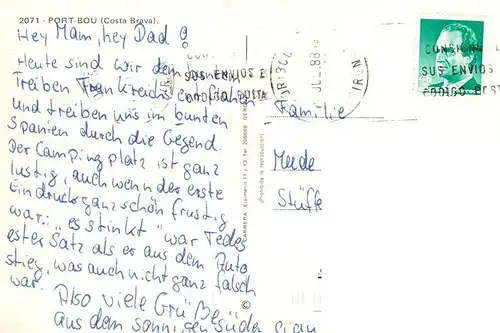 2071 - PORT-BOU (Costa Brava).
Hey Mam, hey Dad!
Heute sind wir dem bunten
Treiben Frankreichs entflohen
und treiben uns im bunten
Spanien durch die Gegend.
Der Campingplatz ist ganz
lustig, auch wenn der erste
Eindruck ganz schön frustig
war: "es stinkt" war Tedes
erster Satz als er aus dem Auto
stieg, was auch nicht ganz falsch
war. Also viele Grüße
aus dem sonnigen Süden
Familie
Merde
Stüffe
CONSIGNE
SUS ENVIOS
CODIGO POSTA
SUS ENVIOS E
JUL. 88
IRUN
(Prohibida la reproducción)
©